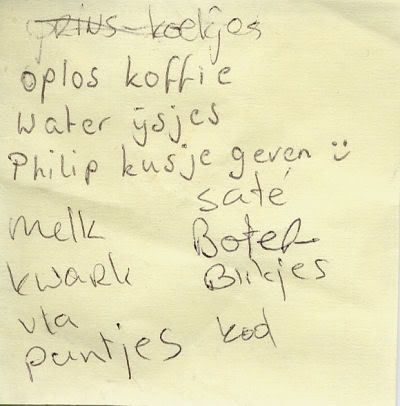 PRINS-koekjes
oplos koffie
water ijsjes
Philip kusje geven :)
saté
melk Boter
kwark Blikjes
vla
puntjes kod